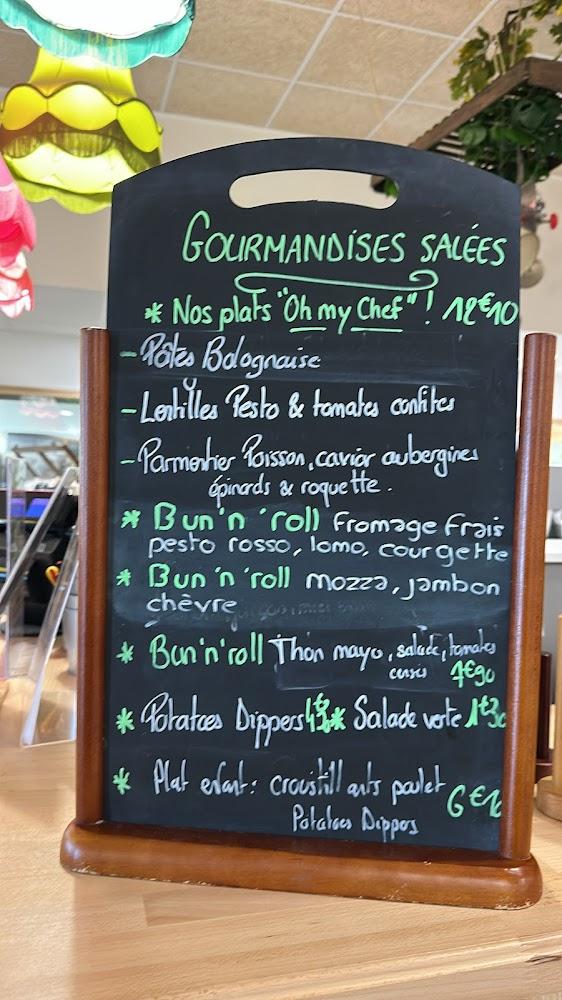 GOURMANDISES SALÉES
* Nos plats "Oh my Chef" ! 12€10
- Pâtes Bolognaise
- Lentilles Pesto & tomates confites
- Parmentier Poisson, caviar aubergines
épinards & roquette.
* Bun'n'roll Fromage Frais
pesto rosso, lomo, courgette
* Bun'n'roll mozza, jambon
chèvre
* Bun'n'roll Thon mayo, salade, tomates
7€90
* Potatoes Dippers * Salade verte 1€30
* Plat enfant: croustillants poulet
Potatoes Dippers